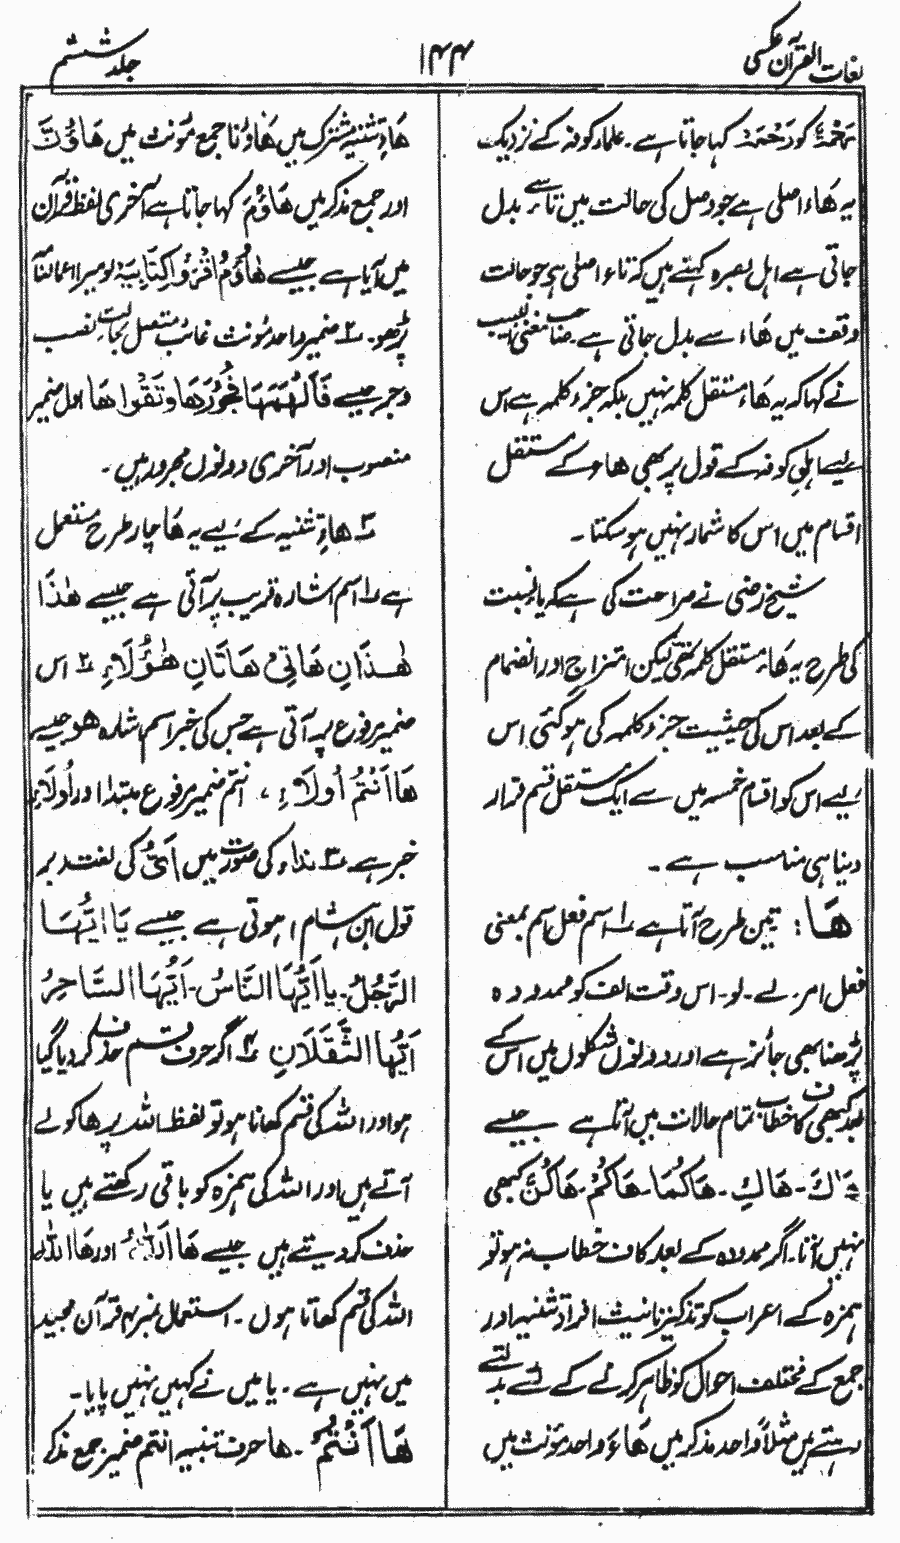 لغات القرآن عکسی
۱۴۴
جلد ششم
رَحْمَۃٌ کو رَحْمَہْ کہا جاتا ہے۔ علماء کوفہ کے نزدیک
یہ ھَاء اصلی ہے جو وصل کی حالت میں تا سے بدل
جاتی ہے اہل بصرہ کہتے ہیں کہ تاء اصلی ہی جو حالت
وقف میں ھَاء سے بدل جاتی ہے۔ صاحب مغنی اللبیب
نے کہا کہ یہ ھَاء مستقل کلمہ نہیں بلکہ جزء کلمہ ہے اس
لیے اہلِ کوفہ کے قول پر بھی ھاء کے مستقل
اقسام میں اس کا شمار نہیں ہو سکتا۔
شیخ رضی نے صراحت کی ہے کہ یاءِ نسبت
کی طرح یہ ھَاء مستقل کلمہ تھی لیکن امتزاج اور انضمام
کے بعد اس کی حیثیت جزء کلمہ کی ہو گئی اس
لیے اس کو اقسام خمسہ میں سے ایک مستقل قسم قرار
دینا ہی مناسب ہے۔
ھَا : تین طرح آتا ہے ۱؎ اسم فعل اسم بمعنی
فعل امر۔ لے۔ لو۔ اس وقت الف کو ممدودہ
پڑھنا بھی جائز ہے اور دونوں شکلوں میں اس کے
بعد کبھی کاف خطاب تمام حالات میں آتا ہے جیسے
ھَاكَ۔ ھَاكِ۔ ھَاكُمَا۔ ھَاكُمْ۔ ھَاكُنَّ کبھی
نہیں آتا۔ اگر ممدودہ کے بعد کاف خطاب نہ ہو تو
ہمزہ کے اعراب کو تذکیر تانیث افراد تثنیہ اور
جمع کے مختلف احوال کو ظاہر کرنے کے لئے بدلتے
رہتے ہیں مثلاً واحد مذکر میں ھَاءَ واحد مؤنث میں
ھَاءِ تثنیہ مشترک میں ھَاؤُنَا جمع مؤنث میں ھَاؤُنَّ
اور جمع مذکر میں ھَاؤُمُ کہا جاتا ہے آخری لفظ قرآن
میں آیا ہے جیسے ھَاؤُمُ اقْرَءُوا كِتَابِيَهْ لو میرا اعمالنامہ
پڑھو۔ ۲؎ ضمیر واحد مؤنث غائب متصل بحالت نصب
و جر جیسے فَاَلْهَمَهَا فُجُوْرَهَا وَتَقْوٰهَا اول ضمیر
منصوب اور آخری دونوں مجرور ہیں۔
۳؎ ھاءِ تنبیہ کے لیے یہ ھَا چار طرح مستعمل
ہے ۱؎ اسم اشارہ قریب پر آتی ہے جیسے ھٰذَا
ھٰذَانِ ھَاتِیْ ھَاتَانِ ھٰؤُلَاءِ ۲؎ اس
ضمیر مرفوع پر آتی ہے جس کی خبر اسم اشارہ ھو جیسے
ھَااَنْتُمْ اُولَاءِ ، انتم ضمیر مرفوع مبتدا اور اُولَاءِ
خبر ہے ۳؎ نداء کی صورت میں اَیُّ کی لغت پر بر
قول ابن ہشام ا ہوتی ہے جیسے یَا اَیُّهَا
الرَّجُلُ۔ یا اَیُّهَا النَّاسُ۔ اَیُّهَا السَّاحِرُ
اَیُّها الثَّقَلَانِ ۴؎ اگر حرف قسم حذف کر دیا گیا
ہو اور اللہ کی قسم کھانا ہو تو لفظ اللہ پر ھا کو لے
آتے ہیں اور اللہ کی ہمزہ کو باقی رکھتے ہیں یا
حذف کر دیتے ہیں جیسے ھَا اَللّٰہُ اور ھَا اللّٰہ
اللہ کی قسم کھاتا ہوں۔ استعمال نمبر ۴ قرآن مجید
میں نہیں ہے۔ یا میں نے کہیں نہیں پایا۔
ھَا اَنْتُمْ۔ ھا حرف تنبیہ انتم ضمیر جمع مذکر